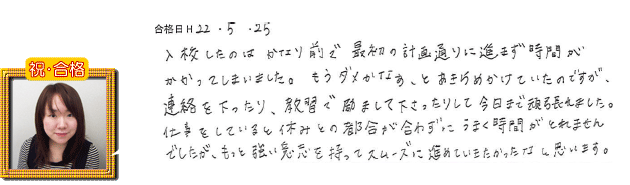 合格日 H 22・5・25
入校したのは かなり前で 最初の計画通りに進まず時間が
かかってしまいました。もうダメかなぁ、とあきらめかけていたのですが、
連絡を下ったり、教習で励まして下さったりして今日まで頑張れました。
仕事をしていると休みとの都合が合わずに うまく時間がとれません
でしたが、もっと強い意志を持ってスムーズに進めていきたかったなと思います。
祝・合格